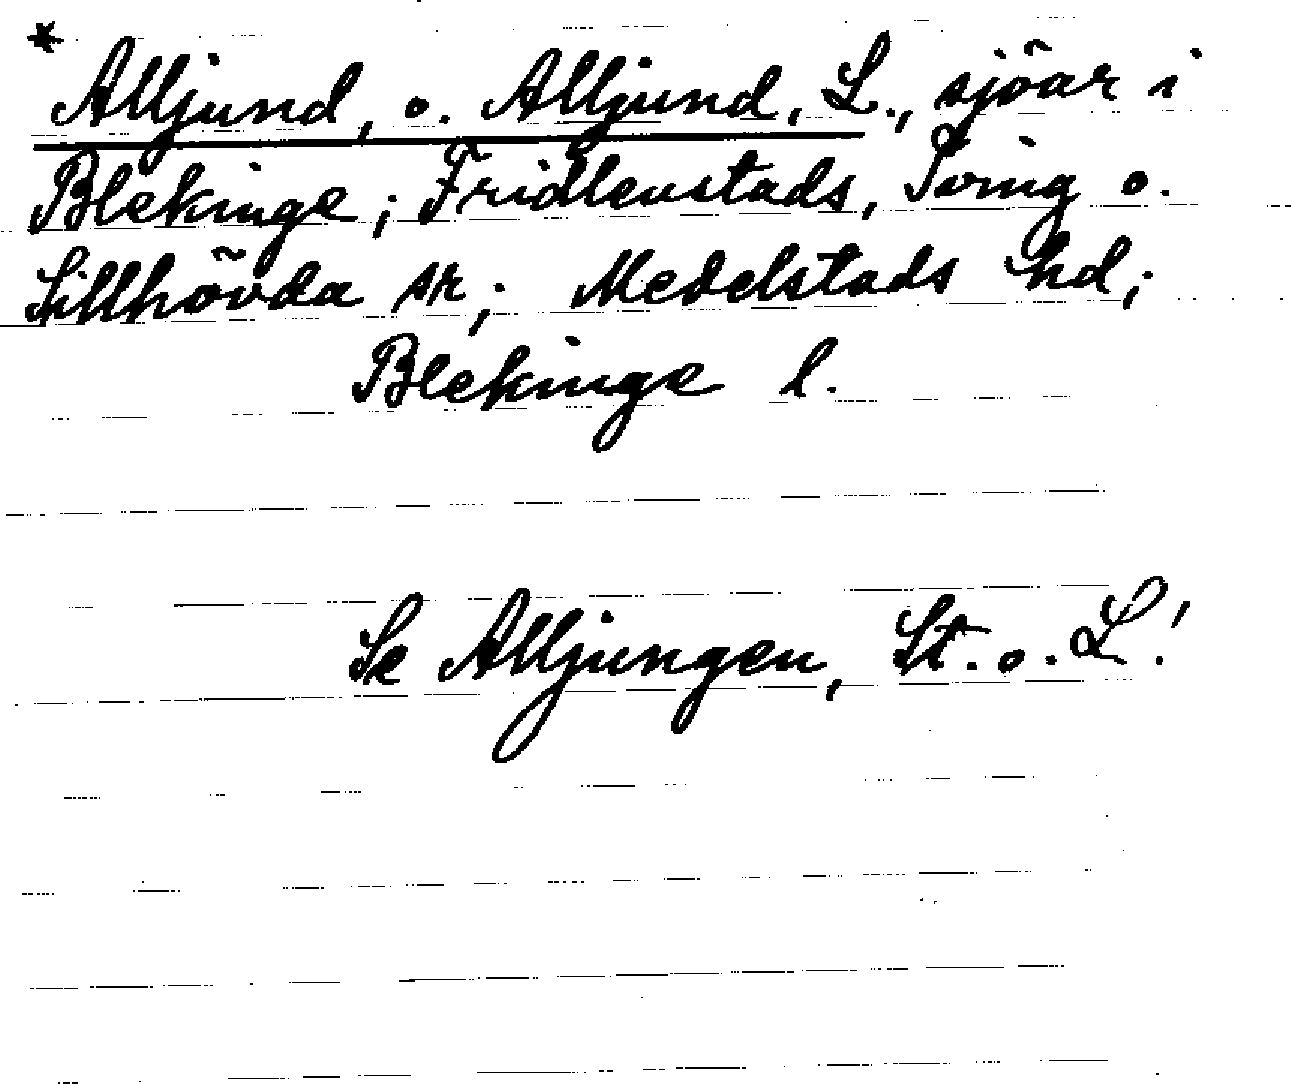 * Alljund, o. Alljund, L., sjöar i
Blekinge; Fridlevstads, Tving o.
Sillhövda sr; Medelstads hd;
Blekinge l.
Se Alljungen, St. o. L!